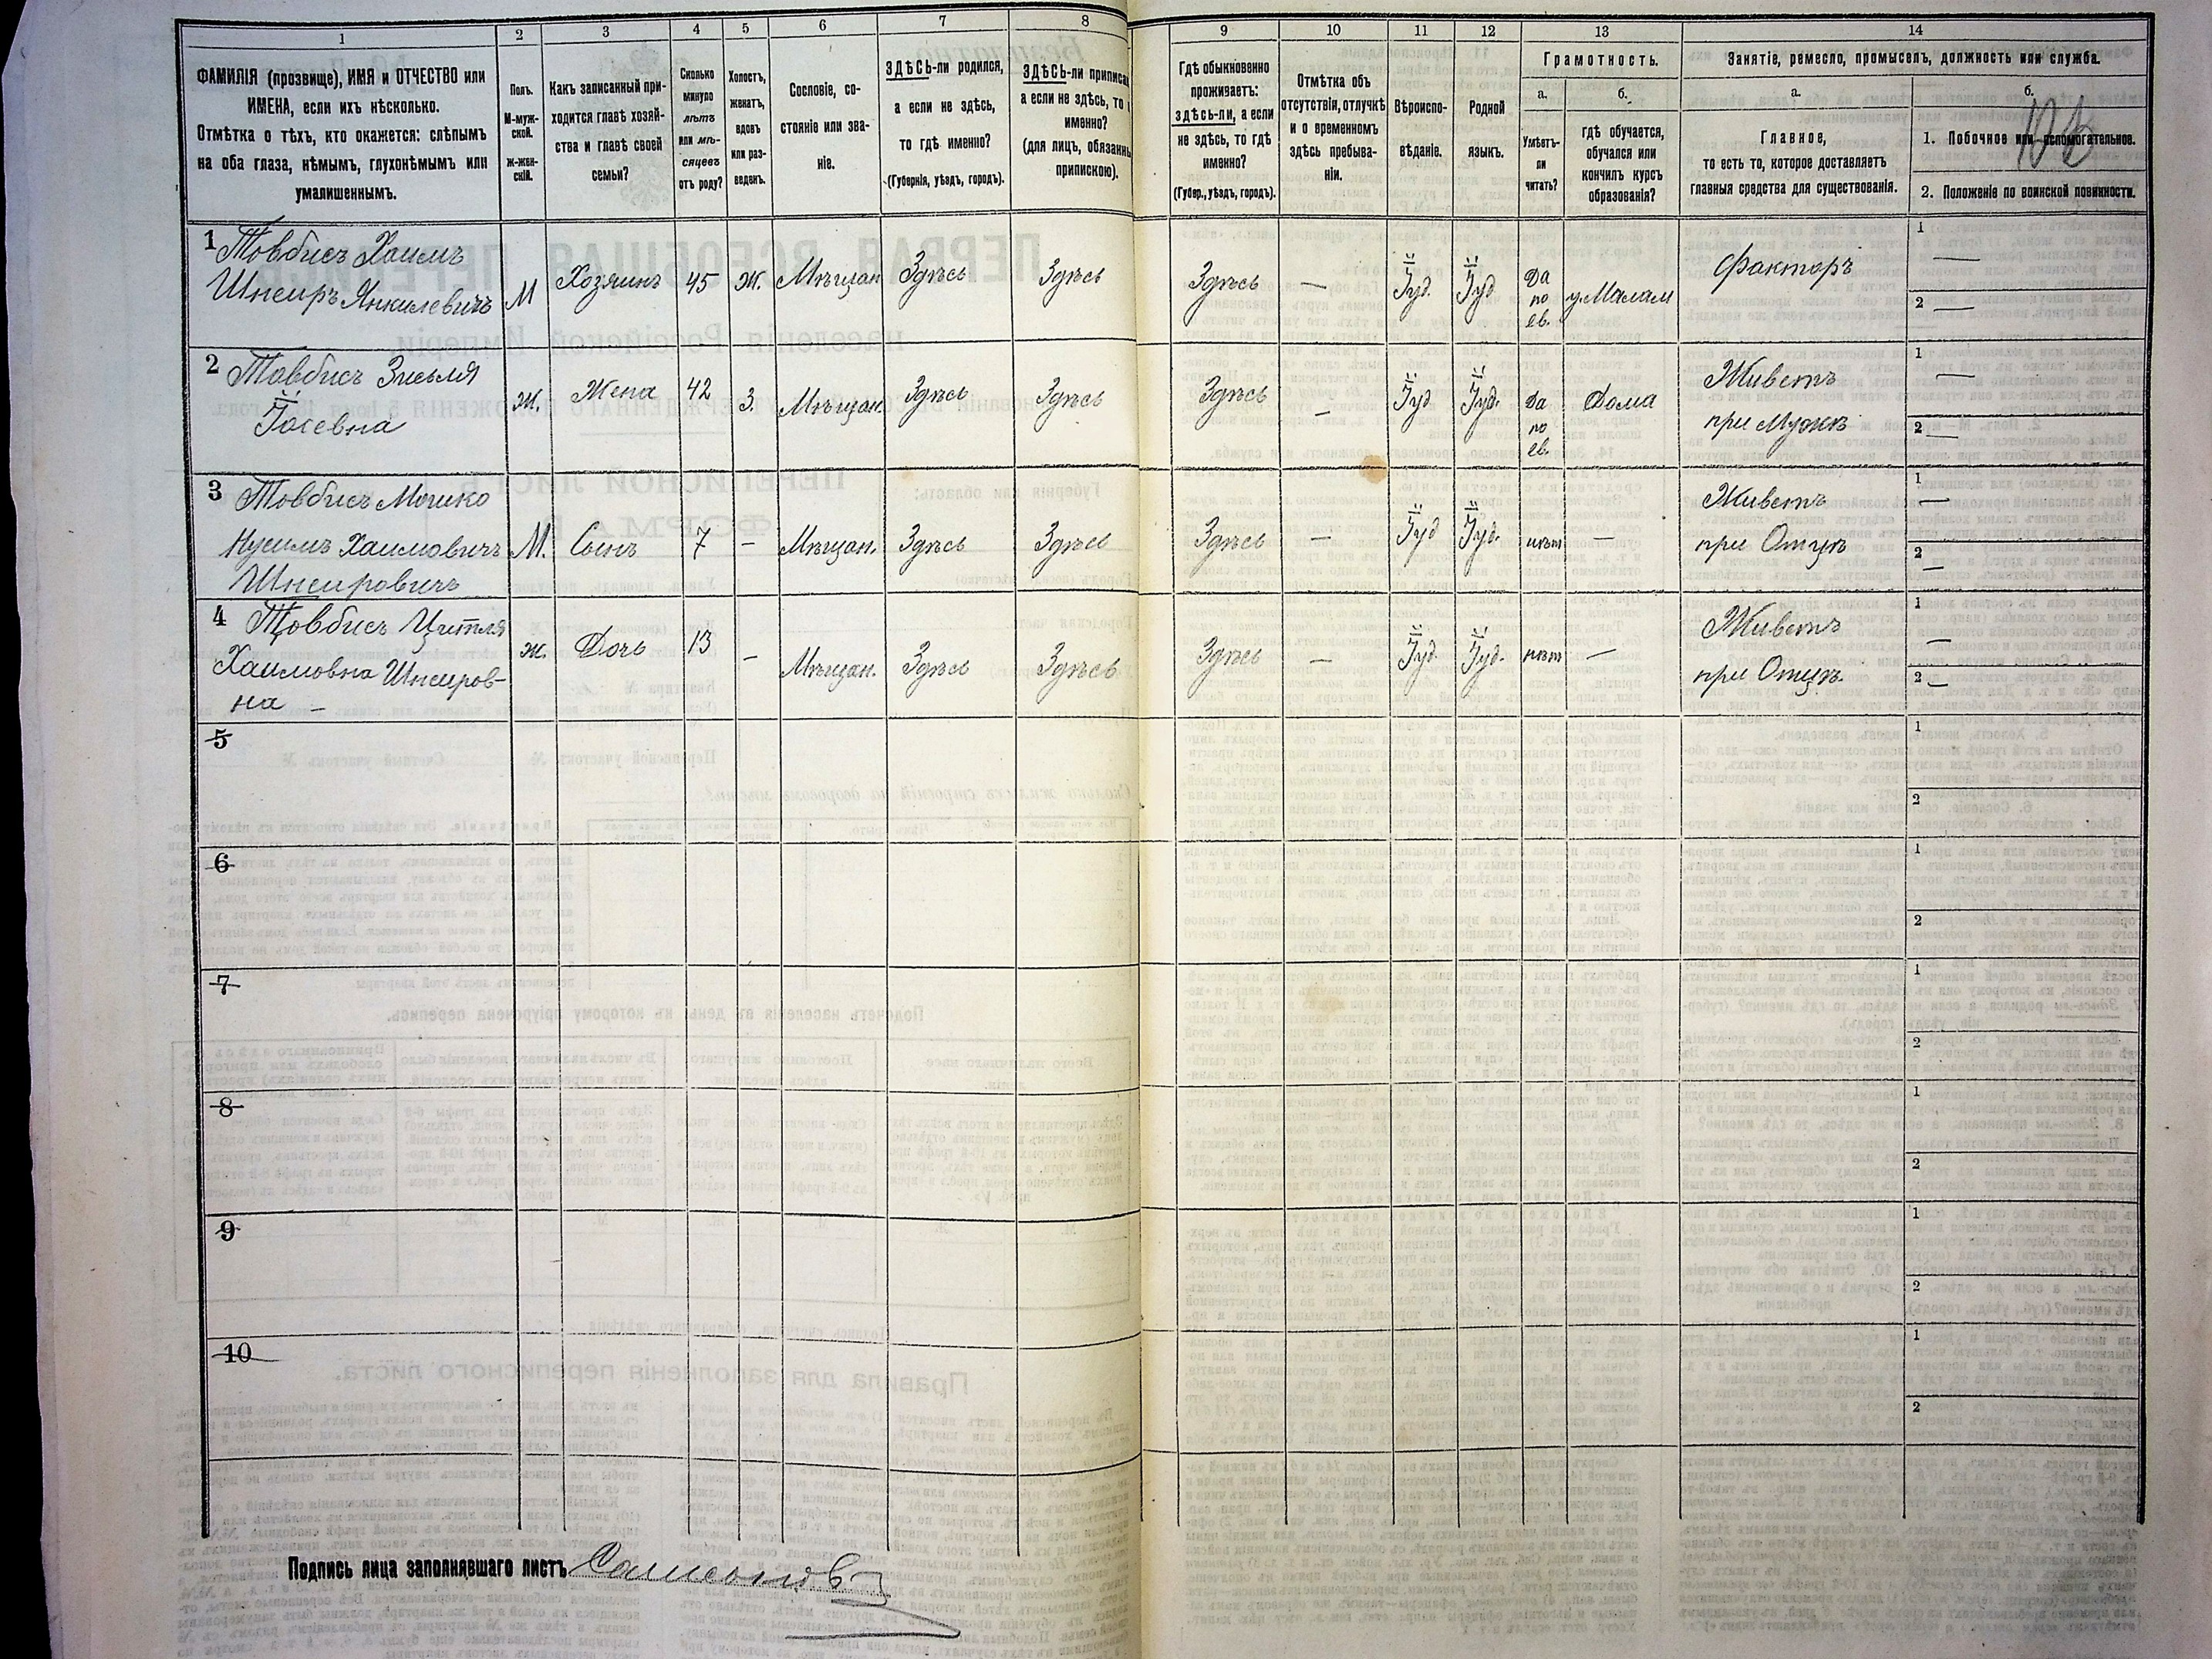 1 2 3 4 5 6 7 8 9 10 11 12 13 14
ФАМИЛІЯ (прозвище), ИМЯ и ОТЧЕСТВО или
ИМЕНА, если ихъ нѣсколько.
Отмѣтка о тѣхъ, кто окажется: слѣпымъ
на оба глаза, нѣмымъ, глухонѣмымъ или
умалишеннымъ.
Полъ.
М-муж-
ской.
ж-жен-
скій.
Какъ записанный при-
ходится главѣ хозяй-
ства и главѣ своей
семьи?
Сколько
минуло
лѣтъ
или мѣ-
сяцевъ
отъ роду?
Холостъ,
женатъ,
вдовъ
или раз-
веденъ.
Сословіе, со-
стояніе или зва-
ніе.
ЗДѢСЬ-ли родился,
а если не здѣсь,
то гдѣ именно?
(Губернія, уѣздъ, городъ).
ЗДѢСЬ-ли приписа
а если не здѣсь, то
именно?
(для лицъ, обязанн
припискою).
Гдѣ обыкновенно
проживаетъ:
здѣсь-ли, а если
не здѣсь, то гдѣ
именно?
(Губер., уѣздъ, городъ).
Отмѣтка объ
отсутствіи, отлучкѣ
и о временномъ
здѣсь пребыва-
ніи.
Вѣроиспо-
вѣданіе.
Родной
языкъ.
Грамотность.
а.
Умѣетъ-
ли
читать?
б.
гдѣ обучается,
обучался или
кончилъ курсъ
образованія?
Занятіе, ремесло, промыселъ, должность или служба.
а.
Главное,
то есть то, которое доставляетъ
главныя средства для существованія.
б.
1. Побочное или вспомогательное.
2. Положеніе по воинской повинности.
1 Товбисъ Хаимъ
Шнеиръ Янкилевичъ М Хозяинъ 45 Ж. Мѣщан Здѣсь Здѣсь Здѣсь — Іуд. Іуд Да по ев. у Малам Факторъ 1 — 2 —
2 Товбисъ Зисьля
Іосевна Ж. Жена 42 З. Мѣщан. Здѣсь Здѣсь Здѣсь — Іуд Іуд. Да по ев. Дома Живетъ при Мужѣ 1 — 2 —
3 Товбисъ Мошко
Нусимъ Хаимовичъ
Шнеировичъ М. Сынъ 7 — Мѣщан. Здѣсь Здѣсь Здѣсь — Іуд Іуд. нѣт — Живетъ при Отцѣ 1 — 2 —
4 Товбисъ Цитля
Хаимовна Шнеиров-
на — ж. Дочь 13 — Мѣщан. Здѣсь Здѣсь Здѣсь — Іуд. Іуд. нѣт — Живетъ при Отцѣ. 1 — 2 —
5 1 2
6 1 2
7 1 2
8 1 2
9 1 2
10 1 2
Подпись лица заполнявшаго листъ